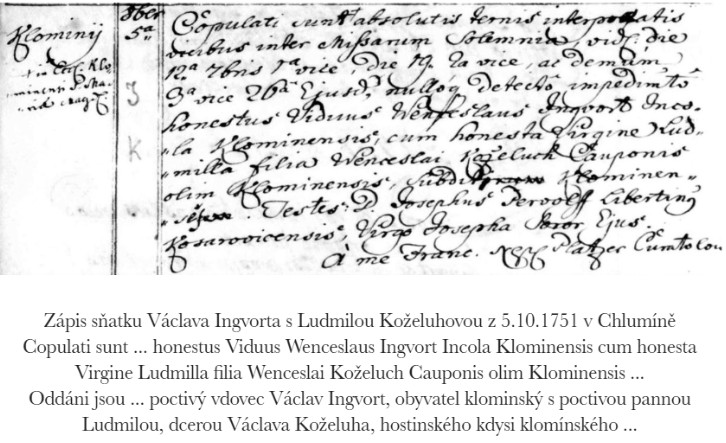 8bris
5ta
Klominÿ
Copulati sunt absolutis ternis interpolatis
vicibus inter Missarum Solemnia, vidt. die
12a 7bris 1a vice, die 19. 2a vice, ac demum
3a vice 26a Ejusd. nulloq detecto impedimto
honestus Viduus Wenceslaus Ingvort Inco-
la Klominensis, cum honesta Virgine Lud-
milla filia Wenceslai Koželuch Cauponis
olim Klominensis, Klominen-
Testes: D. Josephus Pervolff libertinus
Kosarovicensis, Virgo Josepha Soror Ejus.
à me Franc. Platzer
Zápis sňatku Václava Ingvorta s Ludmilou Koželuhovou z 5.10.1751 v Chlumíně
Copulati sunt ... honestus Viduus Wenceslaus Ingvort Incola Klominensis cum honesta
Virgine Ludmilla filia Wenceslai Koželuch Cauponis olim Klominensis ...
Oddáni jsou ... poctivý vdovec Václav Ingvort, obyvatel klominský s poctivou pannou
Ludmilou, dcerou Václava Koželuha, hostinského kdysi klomínského ...